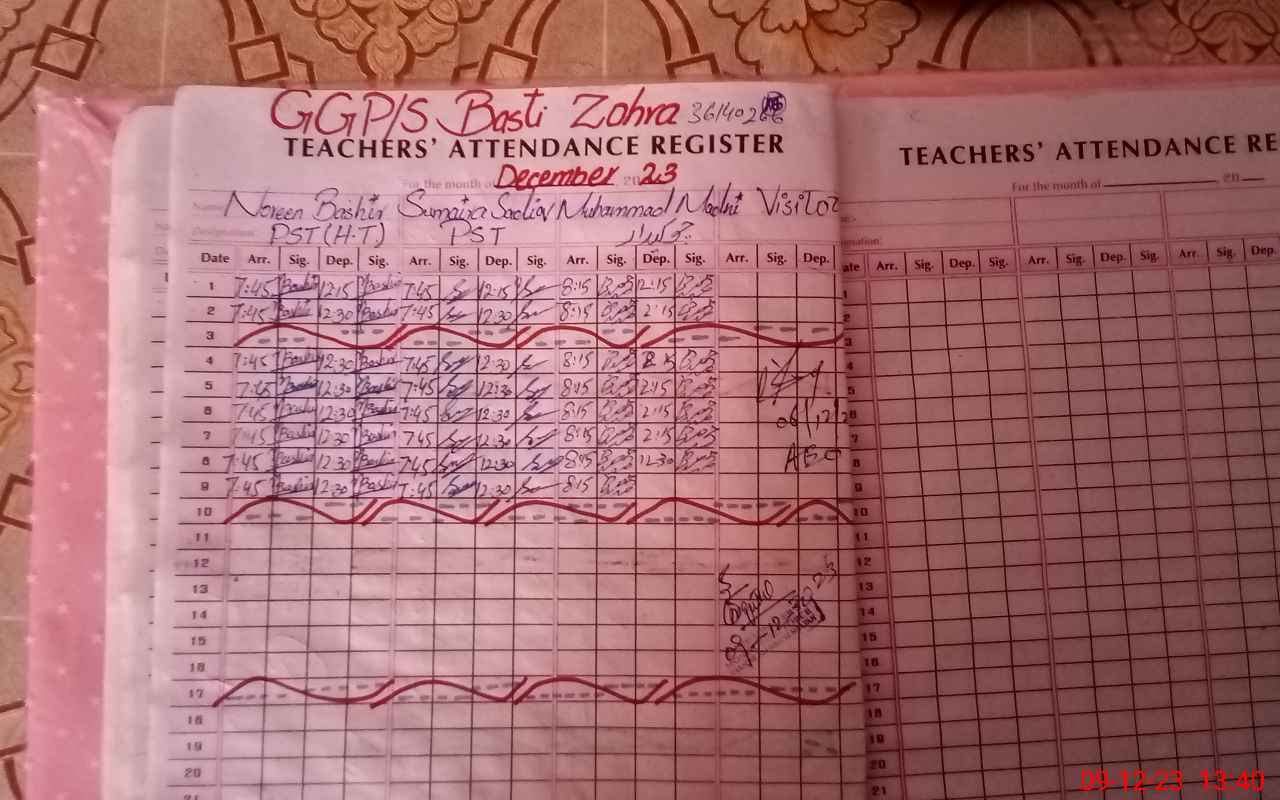 GGP/S Basti Zohra 36140266
TEACHERS' ATTENDANCE REGISTER
For the month of December 2023
Noreen Bashir Sumaira Sadiq Muhammad Madni Visitor
PST (H.T) PST چوکیدار
Date Arr. Sig. Dep. Sig. Arr. Sig. Dep. Sig. Arr. Sig. Dep. Sig. Arr. Sig. Dep.
1 7:45 Bashir 12:15 Bashir 7:45 12:15 8:15 2:15
2 7:45 Bashir 12:30 Bashir 7:45 12:30 8:15 2:15
3
4 7:45 Bashir 12:30 Bashir 7:45 12:30 8:15 2:15
5 7:45 Bashir 12:30 Bashir 7:45 12:30 8:15 2:15
6 7:45 Bashir 12:30 Bashir 7:45 12:30 8:15 2:15
7 7:45 Bashir 12:30 Bashir 7:45 12:30 8:15 2:15
8 7:45 Bashir 12:30 Bashir 7:45 12:30 8:15 12:30
9 7:45 Bashir 12:30 Bashir 7:45 12:30 8:15
10
11
12
13
14
15
16
17
18
19
20
21
06/12/2
AEO
09-12-2023
TEACHERS' ATTENDANCE RE
For the month of 20
ate Arr. Sig. Dep. Sig. Arr. Sig. Dep. Sig. Arr. Sig. Dep.
1
2
3
4
5
6
7
8
9
10
11
12
13
14
15
16
17
18
19
20
21
09-12-23 13:40